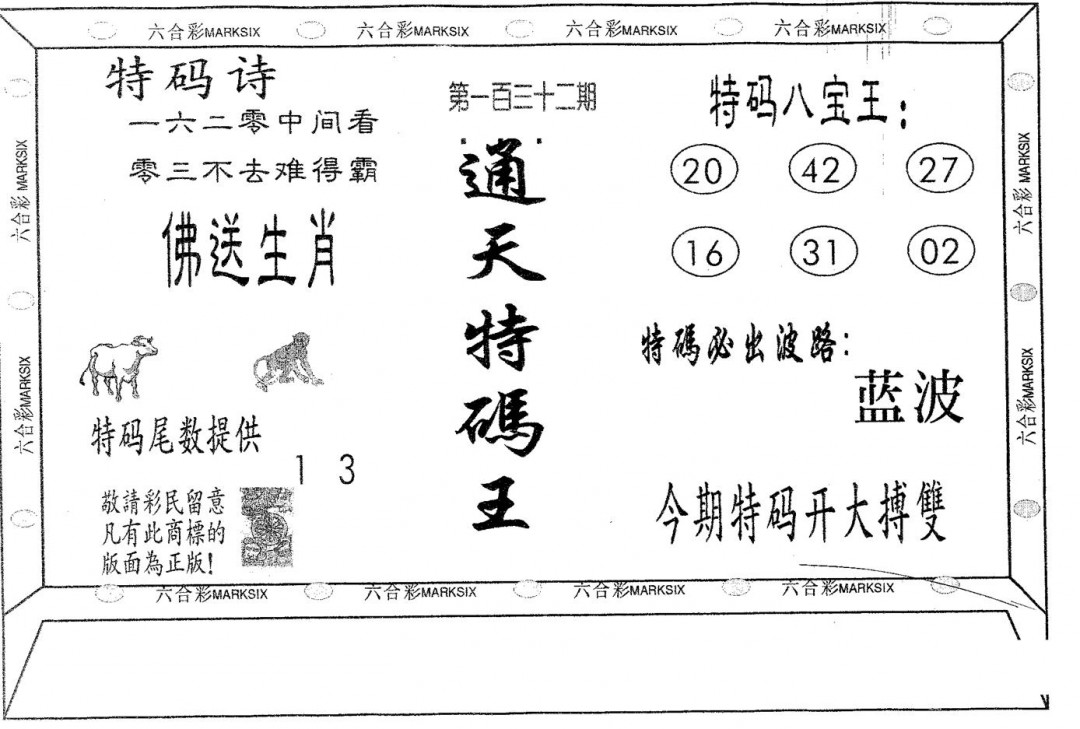 六合彩MARKSIX 六合彩MARKSIX 六合彩MARKSIX 六合彩MARKSIX
特码诗
一六二零中间看
零三不去难得霸
佛送生肖
特码尾数提供
1 3
敬請彩民留意
凡有此商標的
版面為正版!
第一百三十二期
通天特碼王
特码八宝王:
20 42 27
16 31 02
特碼必出波路:
蓝波
今期特码开大搏雙
六合彩MARKSIX
六合彩MARKSIX
六合彩MARKSIX
六合彩MARKSIX
六合彩MARKSIX 六合彩MARKSIX 六合彩MARKSIX 六合彩MARKSIX